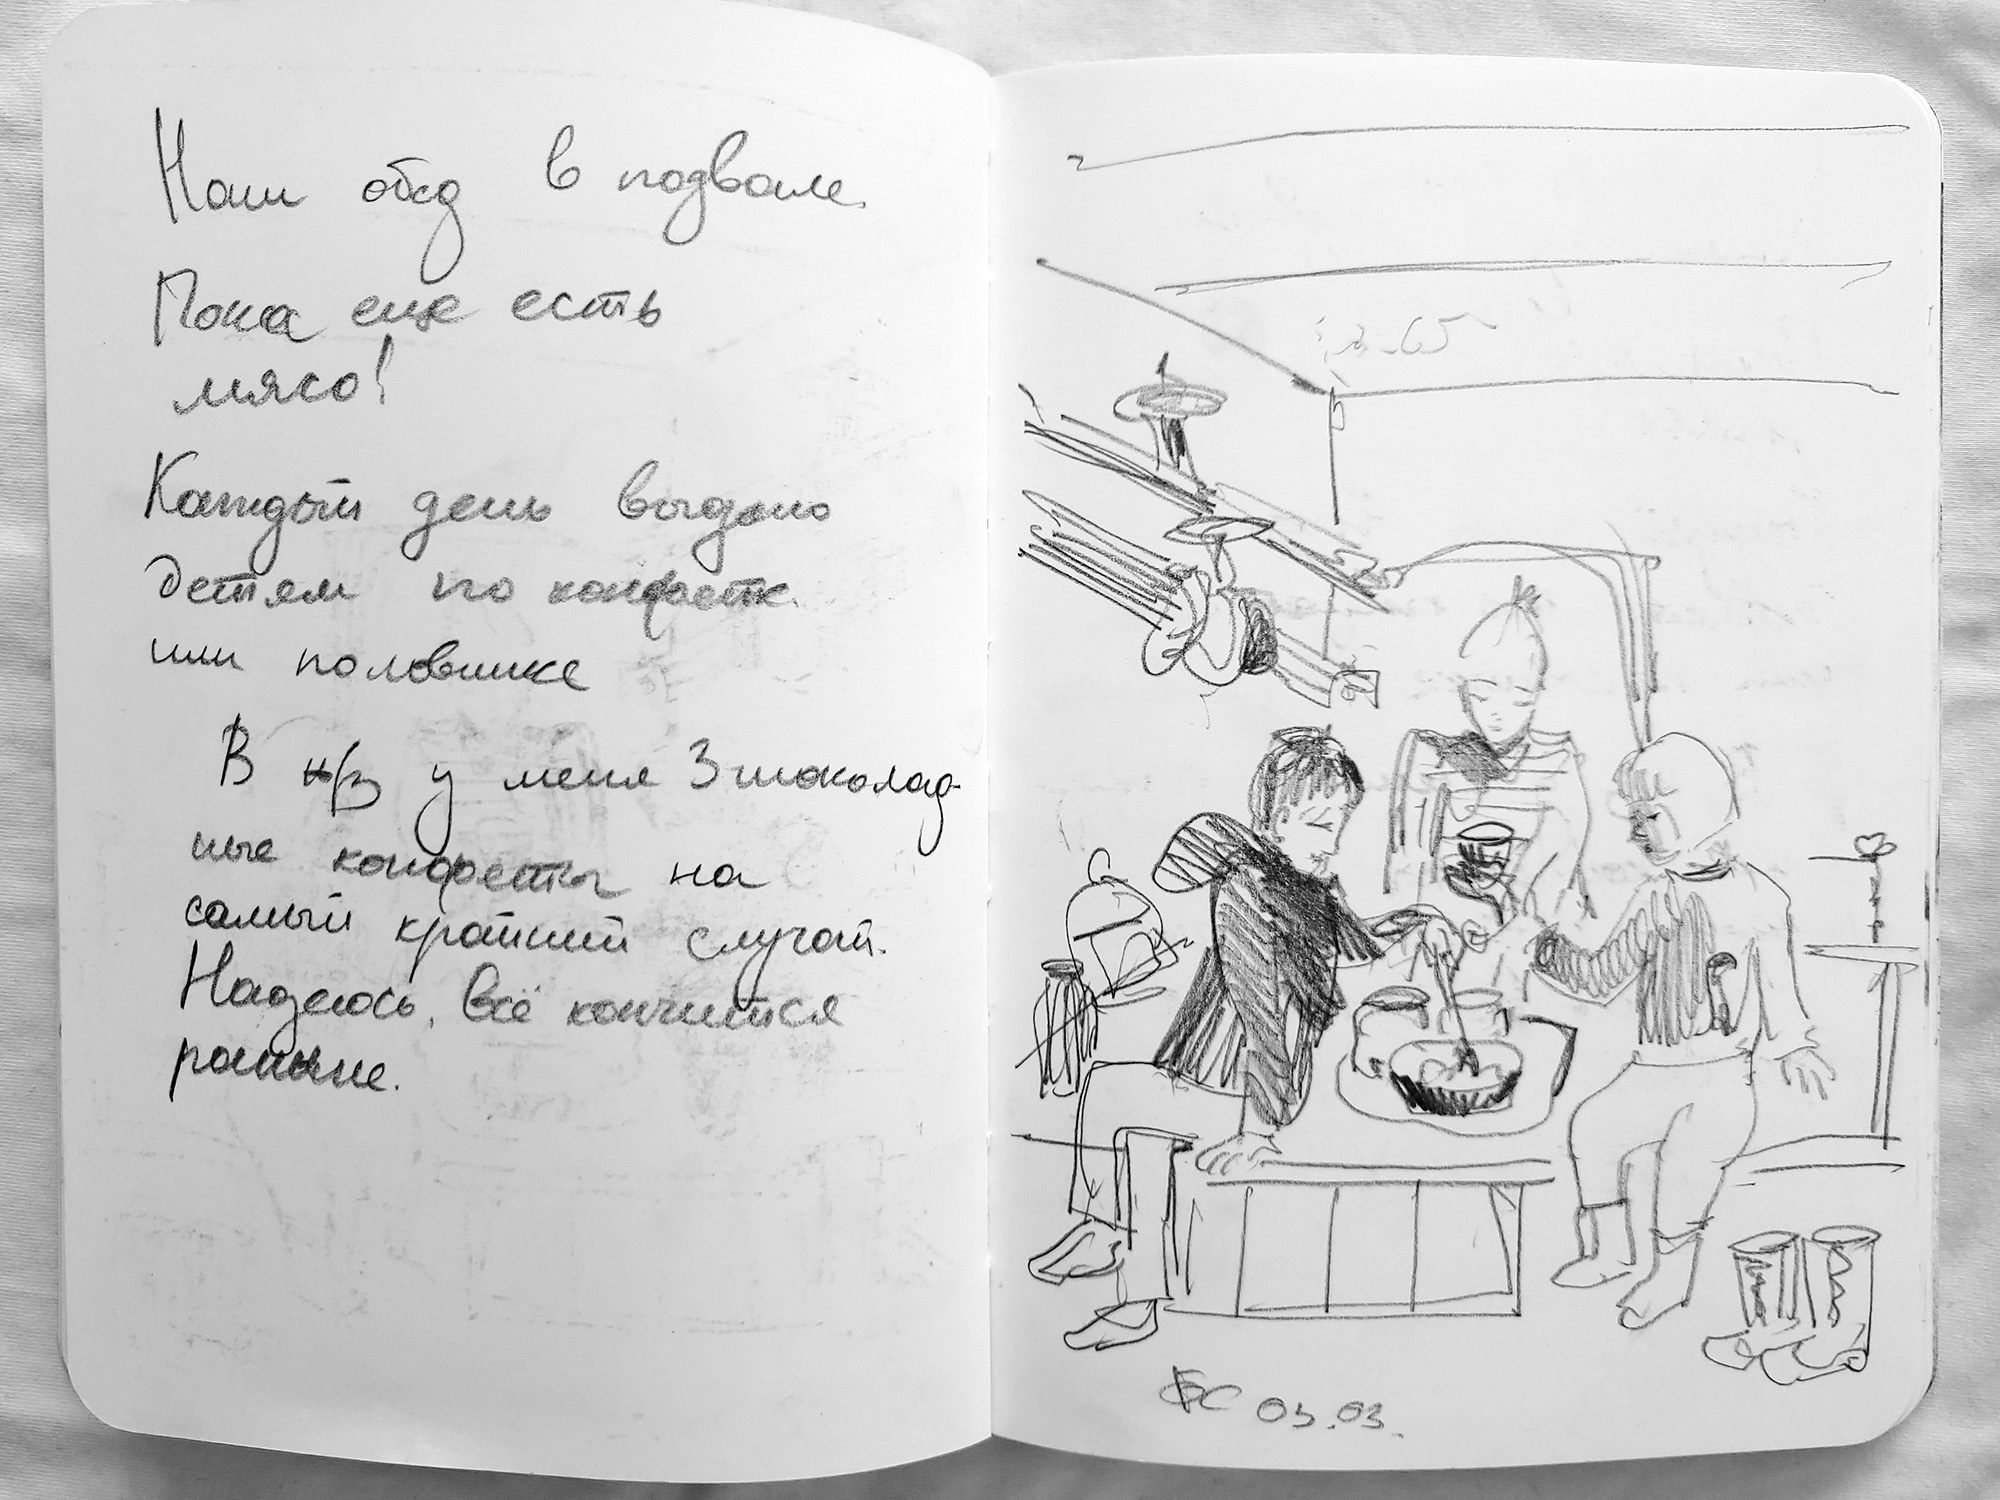 Наш обед в подвале.
Пока еще есть
мясо!
Каждый день выдаю
детям по конфетк.
или половинке
В н/з у меня 3 шоколад-
ные конфеты на
самый крайний случай.
Надеюсь, всё кончится
раньше.
03.03.